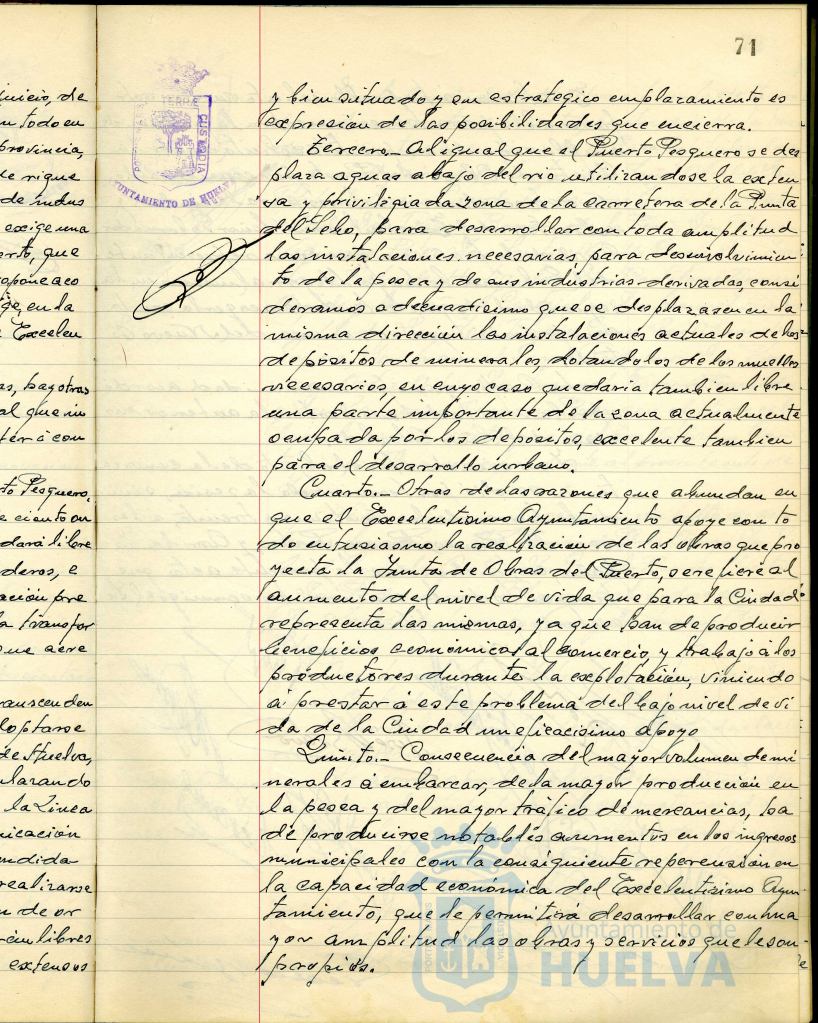 71
y bien situado y su estrategico emplazamiento es
expresión de las posibilidades que encierra.
Tercero.- Al igual que el Puerto Pesquero se des
plaza aguas abajo del rio utilizandose la exten
sa y privilegiada zona de la carretera de la Punta
del Sebo, para desarrollar con toda amplitud
las instalaciones necesarias, para desenvolvimien
to de la pesca y de sus industrias derivadas, consi
deramos adecuadisimo que se desplazasen en la
misma dirección las instalaciones actuales de los
depósitos de minerales, dotandolos de los muelles
necesarios, en cuyo caso quedaria tambien libre
una parte importante de la zona actualmente
ocupada por los depósitos, excelente tambien
para el desarrollo urbano.
Cuarto.- Otras de las razones que abundan en
que el Excelentisimo Ayuntamiento apoye con to
do entusiasmo la realización de las obras que pro
yecta la Junta de Obras del Puerto, se refiere al
aumento del nivel de vida que para la Ciudad
representa las mismas, ya que han de producir
beneficios económicos al comercio, y trabajo á los
productores durante la explotación, viniendo
á prestar á este problema del bajo nivel de vi
da de la Ciudad un eficacisimo apoyo
Quinto.- Consecuencia del mayor volumen de mi
nerales á embarcar, de la mayor producción en
la pesca y del mayor tráfico de mercancias, ha
de producirse notables aumentos en los ingresos
municipales con la consiguiente repercusión en
la capacidad económica del Excelentisimo Ayun
tamiento, que le permitirá desarrollar con ma
yor amplitud las obras y servicios que le son
propios.
uicio, de
n todo en
provincia,
de rique
de indus
exige una
erto, que
ropone aco
ge, en la
Excelen
as, hay otras
al que in
ter á con
to Pesquero,
e ciento on
dará libre
deros, e
ación pre
la transfor
que aere
transcenden
doptarse
de Huelva,
ularando
la Linea
nicación
ndida
realizarse
n de or
rán libres
extensos
TERRÆ
CUSTODIA
AYUNTAMIENTO DE HUELVA
Ayuntamiento de
HUELVA